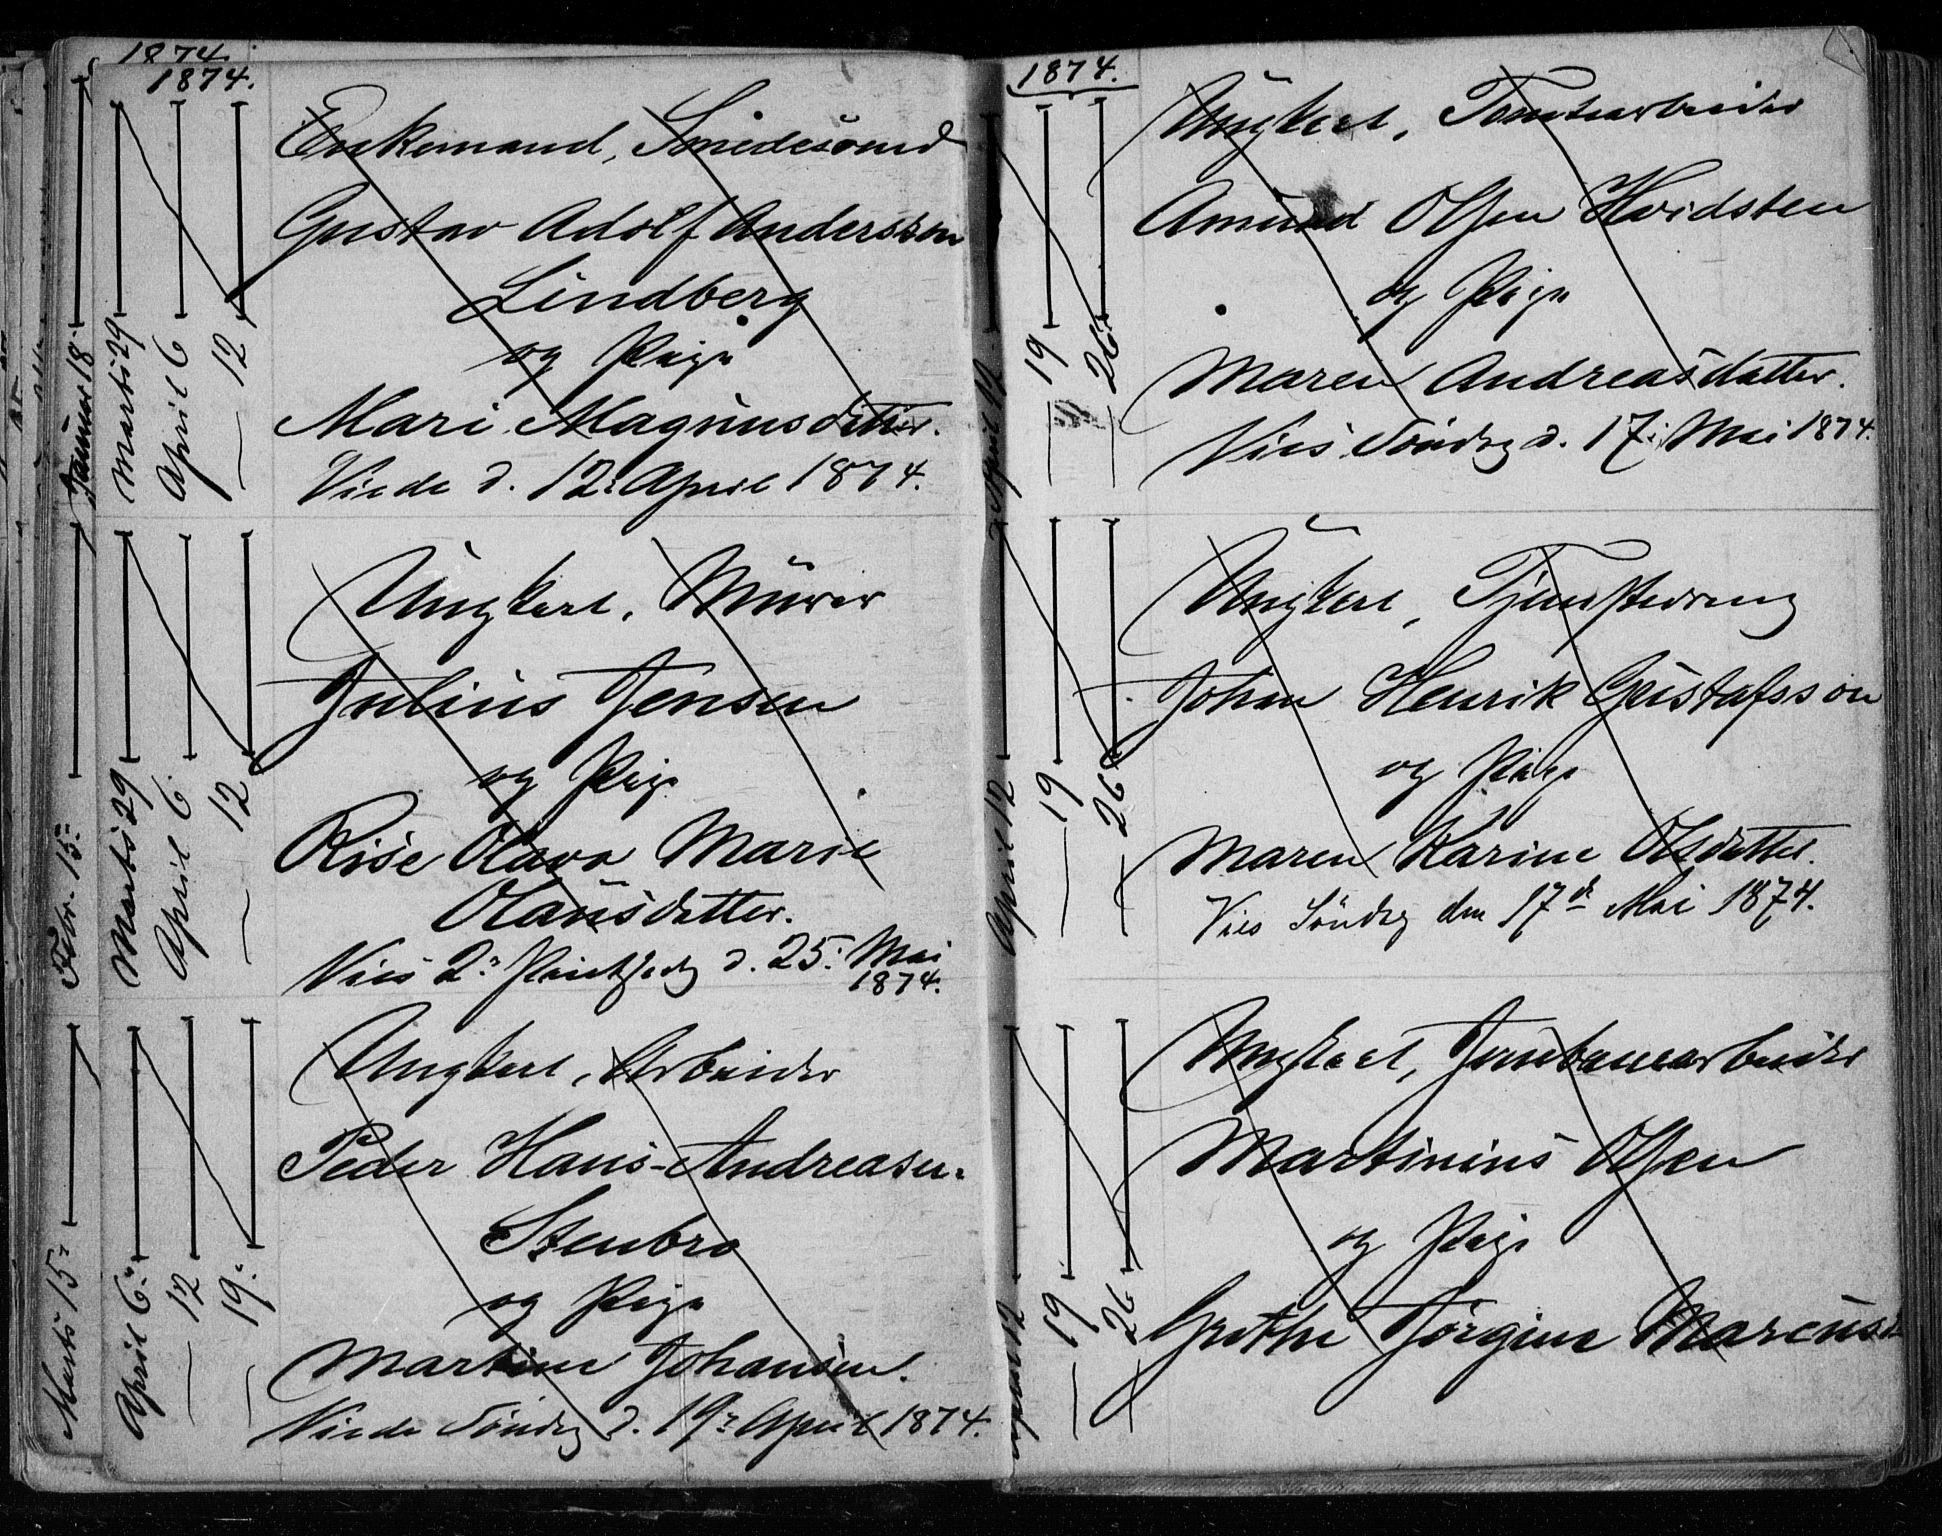 1874.
1874.
Januar 18.
Marts 29
April 6
— 12
Enkemand, Smedesvend
Gustav Adolf Andersson
Lindberg
og Pige
Mari Magnusdatter.
Viede d. 12: April 1874.
Febr. 15:
Marts 29
April 6.
— 12
Ungkarl, Mürer
Julius Jensen
og Pige
Rise Olava Marie
Olausdatter.
Vies 2: Pintsedag d. 25: Mai
1874.
Marts 15:
April 6:
— 12
— 19:
Ungkarl, Arbeider
Peder Hans-Andreasen-
Stenbro
og Pige
Martine Johansen.
Viede Søndag d. 19: April 1874.
1874.
April 12
— 19
— 26
Ungkarl, Tomtearbeider
Amund Olsen Hvidsten
og Pige
Maren Andreasdatter.
Vies Søndag d. 17: Mai 1874.
April 12
— 19
— 26
Ungkarl, Tjenestedreng
Johan Henrik Gustafsson
og Pige
Maren Karine Olsdatter.
Vies Søndag den 17de Mai 1874.
April 12
— 19
— 26
Ungkarl, Jernbanearbeider
Martinius Olsen
og Pige
Grethe Jørgine Marcusd